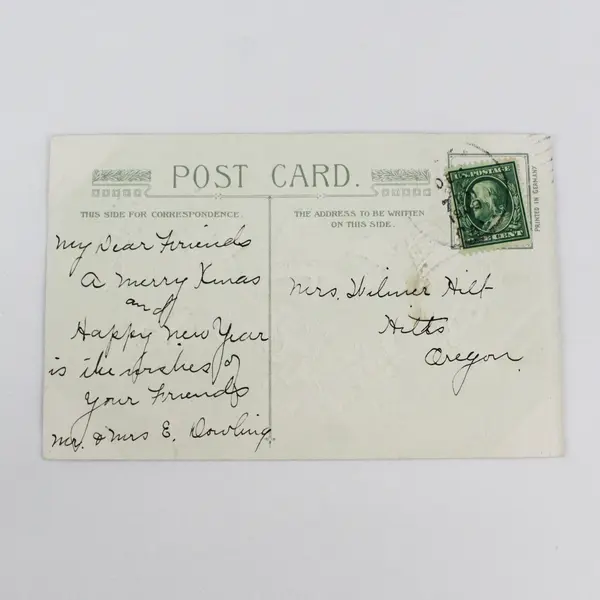 POST CARD.
THIS SIDE FOR CORRESPONDENCE.
THE ADDRESS TO BE WRITTEN
ON THIS SIDE.
My Dear Friends
a Merry Xmas
and
Happy New Year
is the wishes of
your Friends
Mr. & Mrs E. Dowling
Mrs. Wilmer Hilt
Hilts
Oregon.
U.S. POSTAGE
CENT
PRINTED IN GERMANY